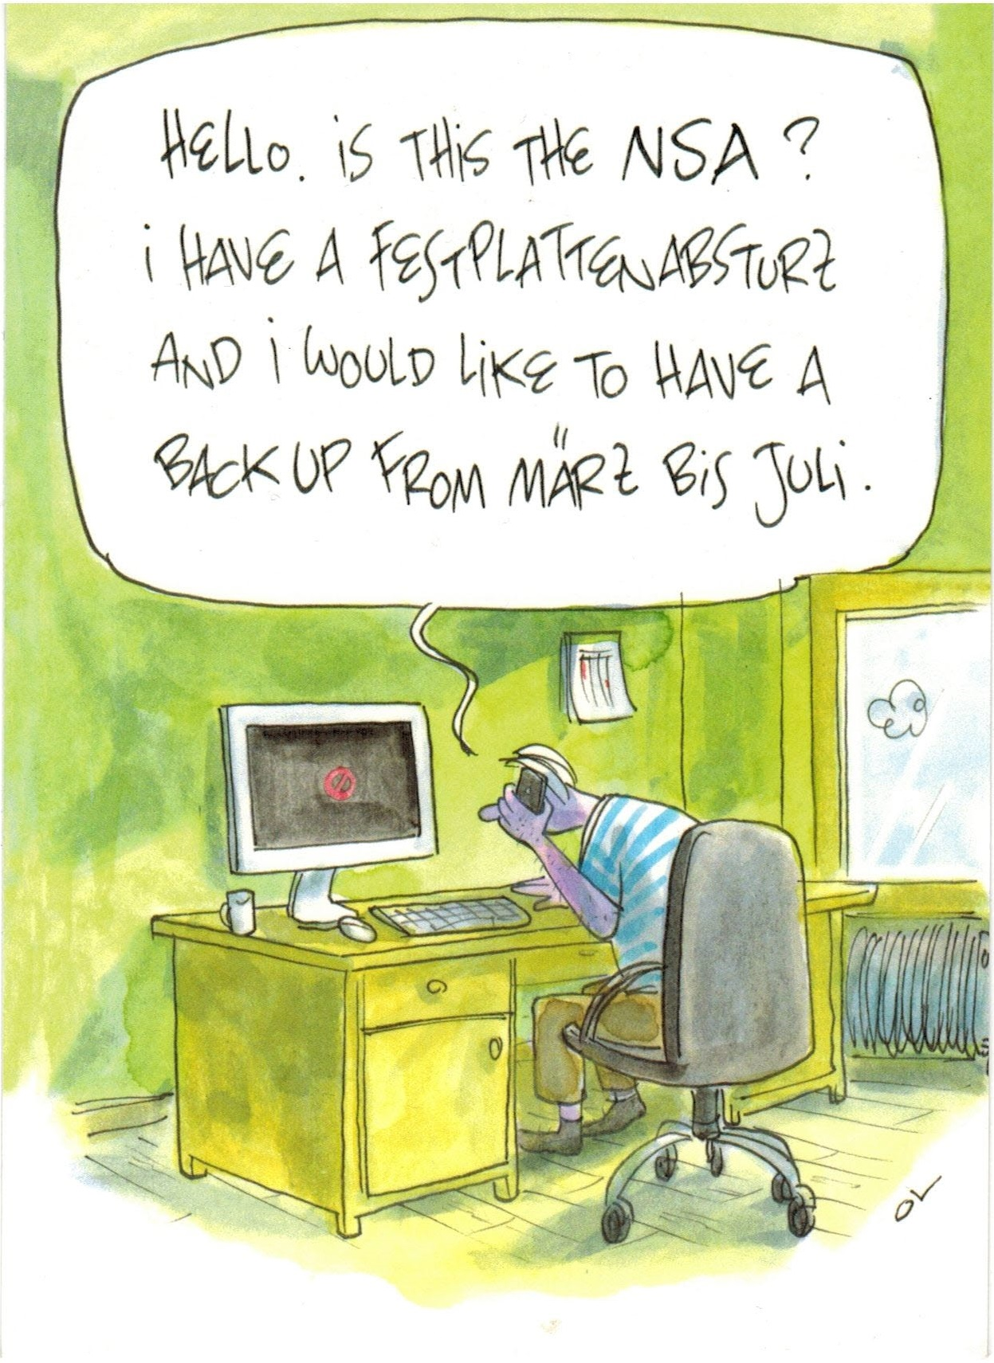 HELLO. iS THiS THE NSA ?
i HAVE A FESTPLATTENABSTURZ
AND i WOULD LiKE TO HAVE A
BACKUP FROM MÄRZ BiS JULi.
OL